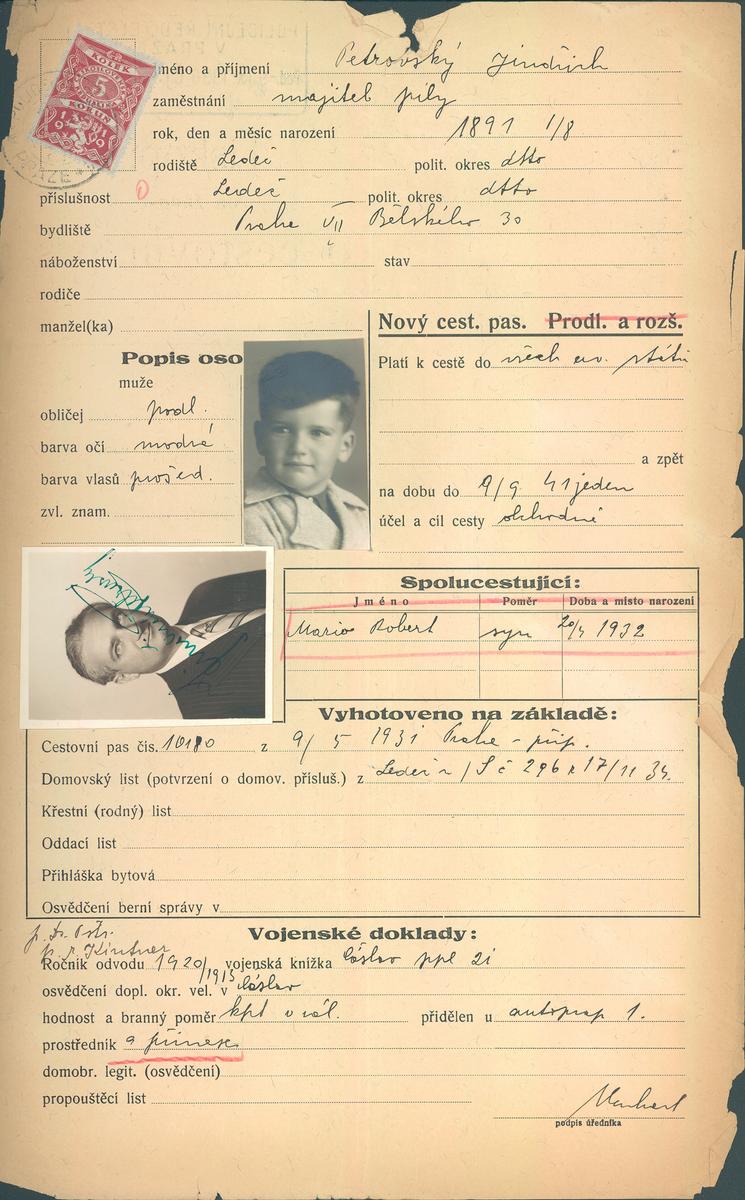 KOLEK
5
KORUN
1919
jméno a příjmení Petrovský Jindřich
zaměstnání majitel pily
rok, den a měsíc narození 1891 1/8
rodiště Ledeč polit. okres dtto
příslušnost Ledeč polit. okres dtto
bydliště Praha VII Bělského 30
náboženství stav
rodiče
manžel(ka)
Nový cest. pas. Prodl. a rozš.
Popis oso
muže
obličej podl.
barva očí modré
barva vlasů prošed.
zvl. znam.
Platí k cestě do všech ev. států
a zpět
na dobu do 9/9 41 jeden
účel a cíl cesty obchodně
Spolucestující:
Jméno Poměr Doba a místo narození
Robert syn 20/ 1932
Vyhotoveno na základě:
Cestovní pas čís. 10180 z 9/5 1931 Praha
Domovský list (potvrzení o domov. přísluš.) z Ledeč n/S č 296 z 17/11 34.
Křestní (rodný) list
Oddací list
Přihláška bytová
Osvědčení berní správy v
Vojenské doklady:
Ročník odvodu 1920/1915 vojenská knížka Čáslav ppl 21
osvědčení dopl. okr. vel. v Čáslav
hodnost a branný poměr kpt v zál. přidělen u autoprap 1.
prostředník
domobr. legit. (osvědčení)
propouštěcí list
podpis úředníka